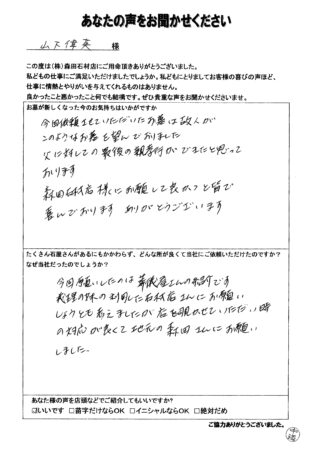 あなたの声をお聞かせください
山下偉英 様
この度は(株)森田石材店にご用命頂きありがとうございました。
私どもの仕事にご満足いただけましたでしょうか。私どもにとりましてお客様の喜びの声ほど、
仕事に情熱とやりがいを与えてくれるものはありません。
良かったこと悪かったこと何でも結構です。ぜひ貴重な声をお聞かせくださいませ。
お墓が新しくなった今のお気持ちはいかがですか
今回依頼させていただいたお墓は故人が
このようなお墓を望んでおりました
父に対しての最後の親孝行ができたと思って
おります
森田石材店様にお願して良かったと皆で
喜んでおります ありがとうございます
たくさん石屋さんがあるにもかかわらず、どんな所が良くて当社にご依頼いただけたのですか?
なぜ当社だったのでしょうか?
今回願いしたのは葬儀屋さんの紹介です
義理の妹の利用した石材店さんにお願い
しようとも考えましたが店を覗かせていただい時
の対応が良くて地元の森田さんにお願い
しました。
あなた様の声を店頭などでご紹介してもいいですか?
□いいです □苗字だけならOK □イニシャルならOK □絶対だめ
ご協力ありがとうございました。